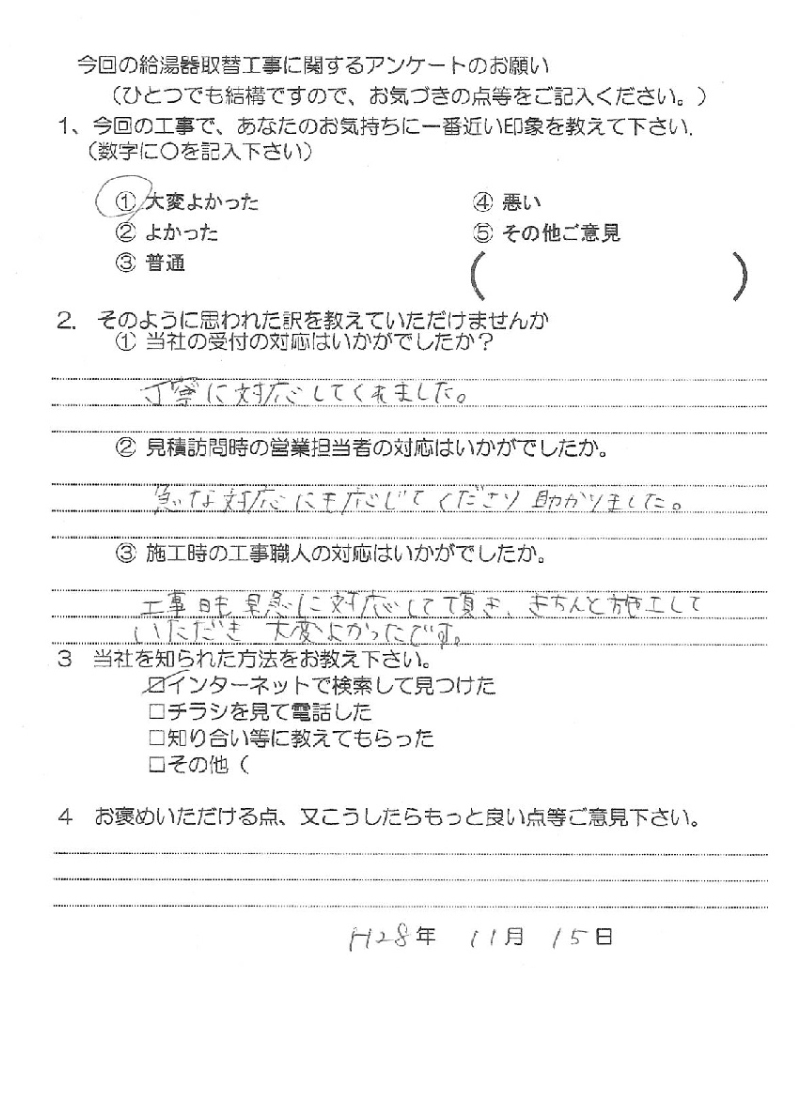 今回の給湯器取替工事に関するアンケートのお願い
（ひとつでも結構ですので、お気づきの点等をご記入ください。）
1、今回の工事で、あなたのお気持ちに一番近い印象を教えて下さい.
（数字に〇を記入下さい）
① 大変よかった ④ 悪い
② よかった ⑤ その他ご意見
③ 普通 （ ）
2. そのように思われた訳を教えていただけませんか
① 当社の受付の対応はいかがでしたか？
丁寧に対応してくれました。
② 見積訪問時の営業担当者の対応はいかがでしたか。
急な対応にも応じてくださり 助かりました。
③ 施工時の工事職人の対応はいかがでしたか。
工事日も早急に対応して頂き、きちんと施工して
いただき 大変よかったです。
3 当社を知られた方法をお教え下さい。
☑インターネットで検索して見つけた
□チラシを見て電話した
□知り合い等に教えてもらった
□その他（
4 お褒めいただける点、又こうしたらもっと良い点等ご意見下さい。
H28年 11月 15日